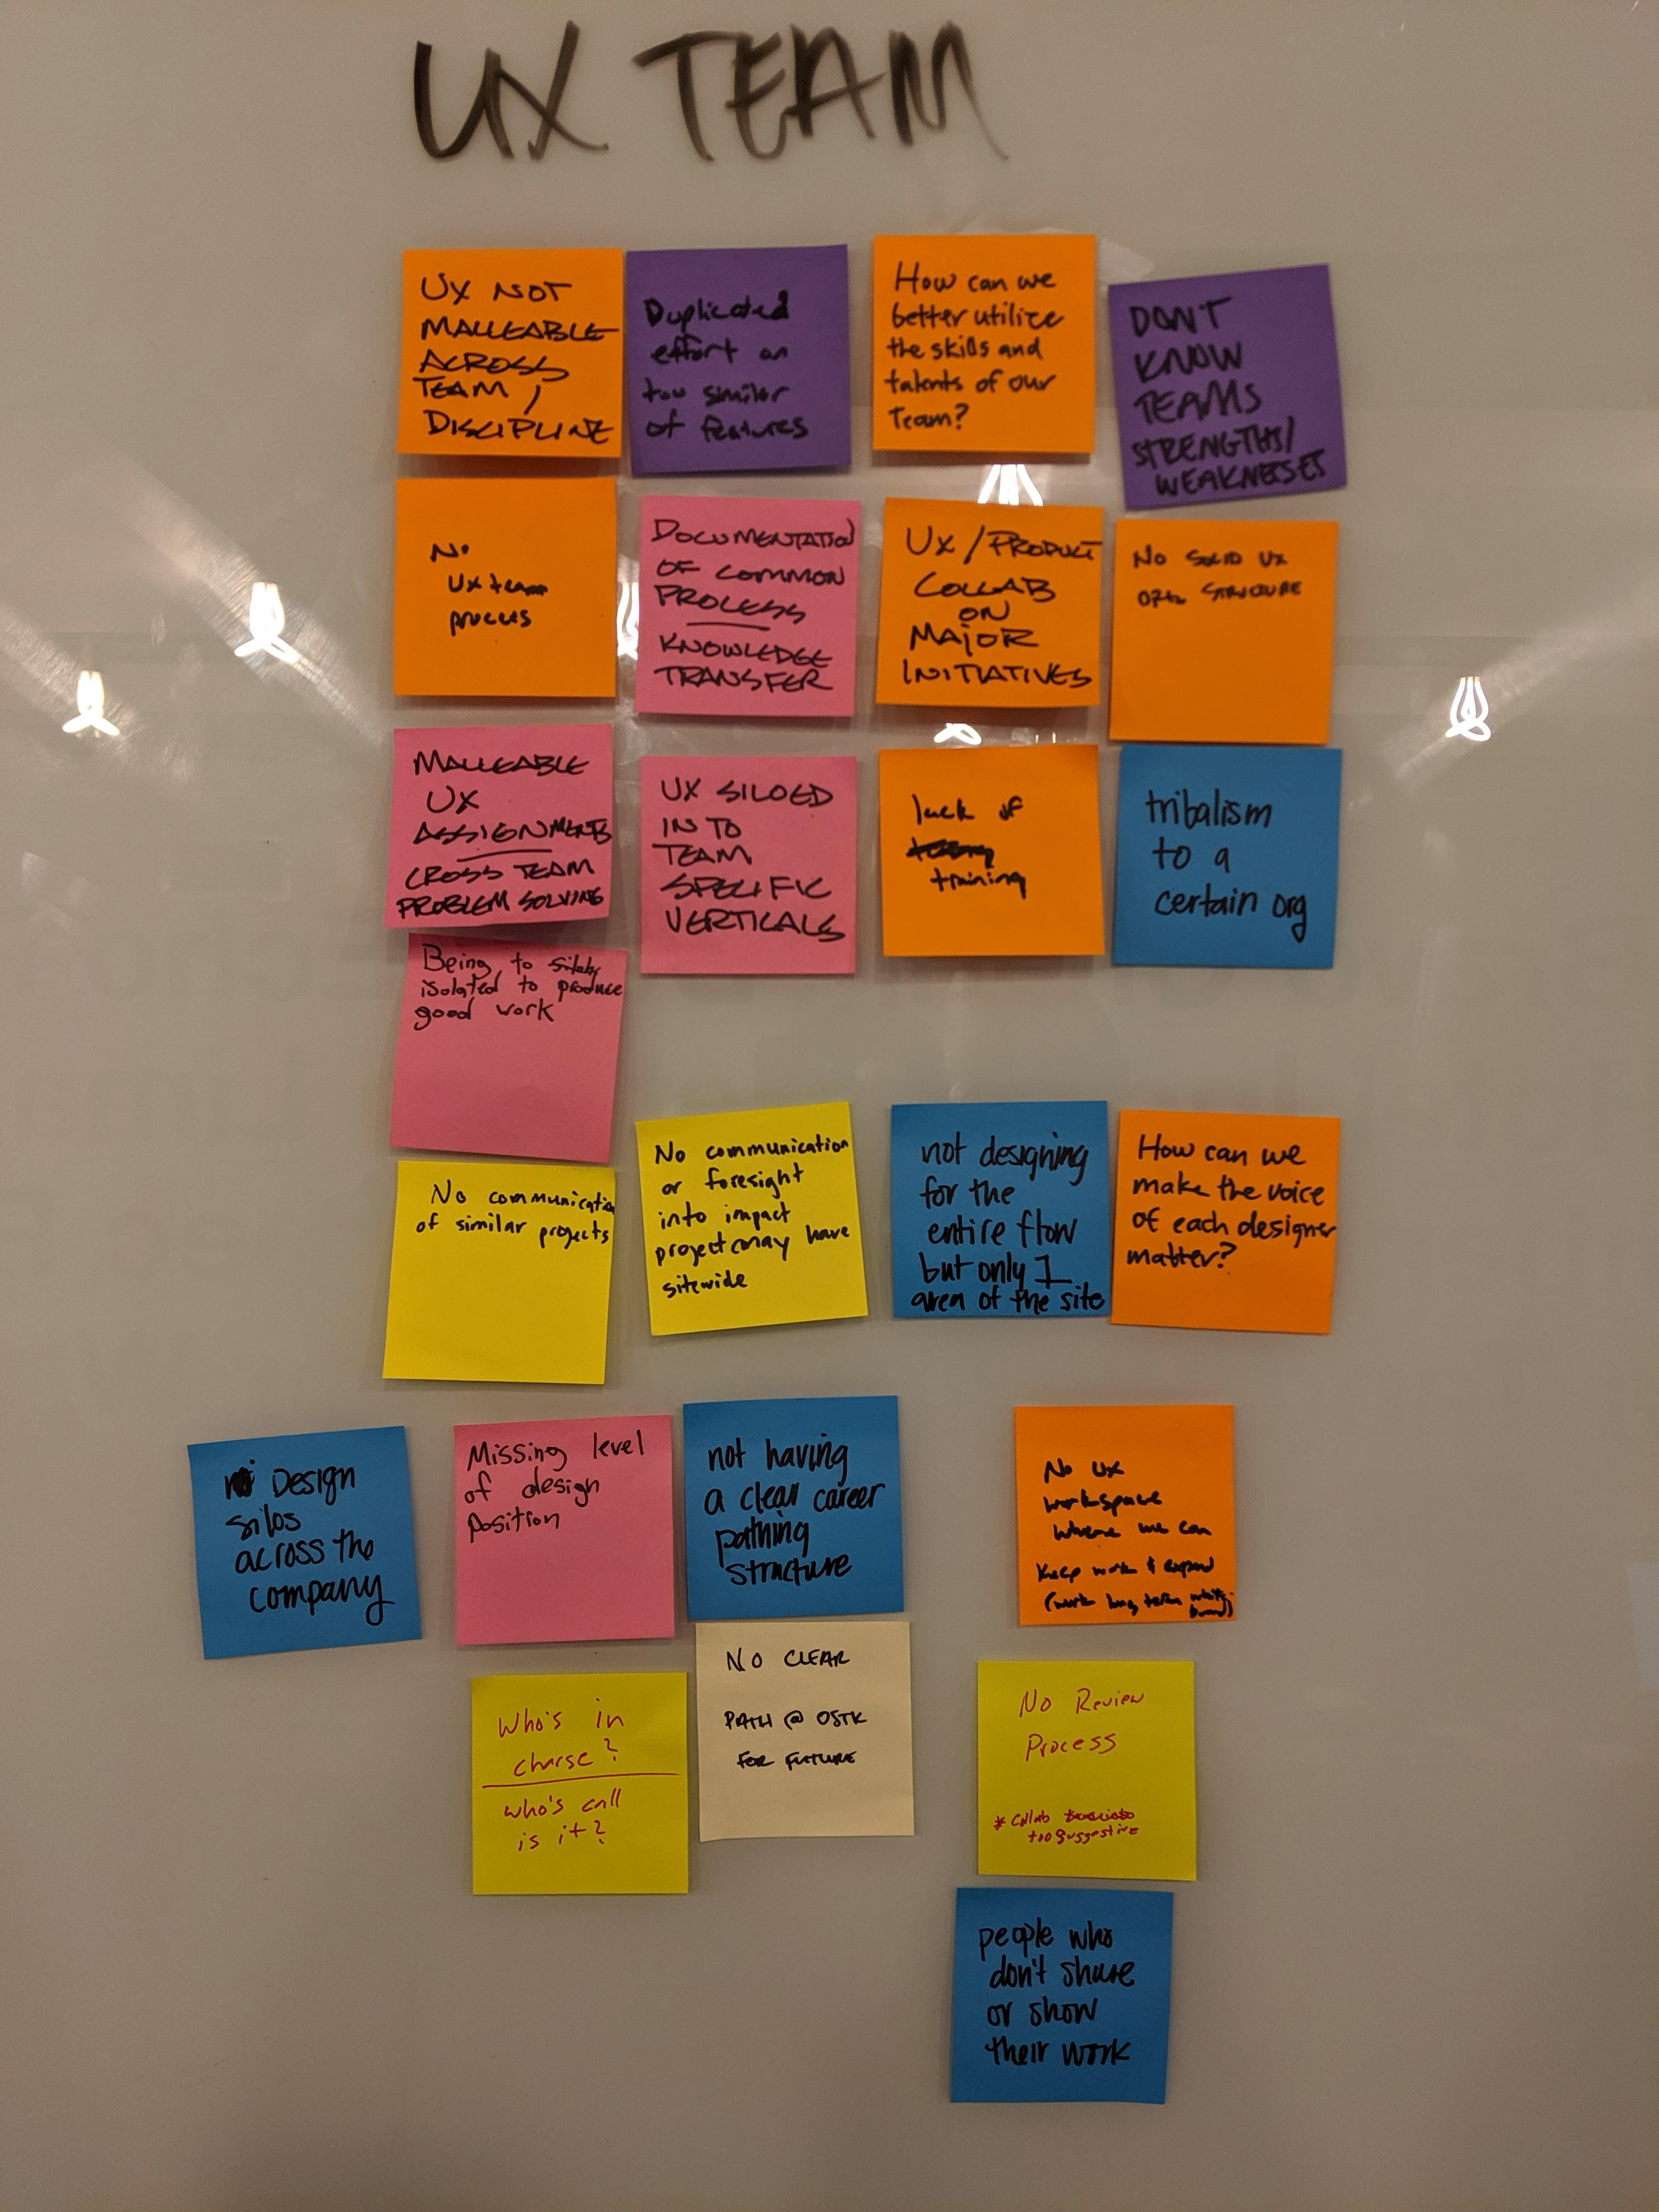 UX TEAM
UX NOT
MALLEABLE
ACROSS
TEAM /
DISCIPLINE
Duplicated
effort on
too similar
of features
How can we
better utilize
the skills and
talents of our
Team?
DON'T
KNOW
TEAMS
STRENGTHS/
WEAKNESSES
No
UX team
process
DOCUMENTATION
OF COMMON
PROCESS
KNOWLEDGE
TRANSFER
UX / PRODUCT
COLLAB
ON
MAJOR
INITIATIVES
NO SOLID UX
STRUCTURE
MALLEABLE
UX
ASSIGNMENTS
CROSS TEAM
PROBLEM SOLVING
UX SILOED
IN TO
TEAM
SPECIFIC
VERTICALS
lack of
training
tribalism
to a
certain org
Being to
isolated to produce
good work
No communication
of similar projects
No communication
or foresight
into impact
project may have
sitewide
not designing
for the
entire flow
but only 1
area of the site
How can we
make the voice
of each designer
matter?
Design
silos
across the
company
Missing level
of design
position
not having
a clear career
pathing
structure
No UX
workspace
where we can
keep work & expand
(work long term white
board)
Who's in
charge?
who's call
is it?
NO CLEAR
PATH @ OSTK
FOR FUTURE
No Review
Process
* collab
too suggestive
people who
don't share
or show
their work